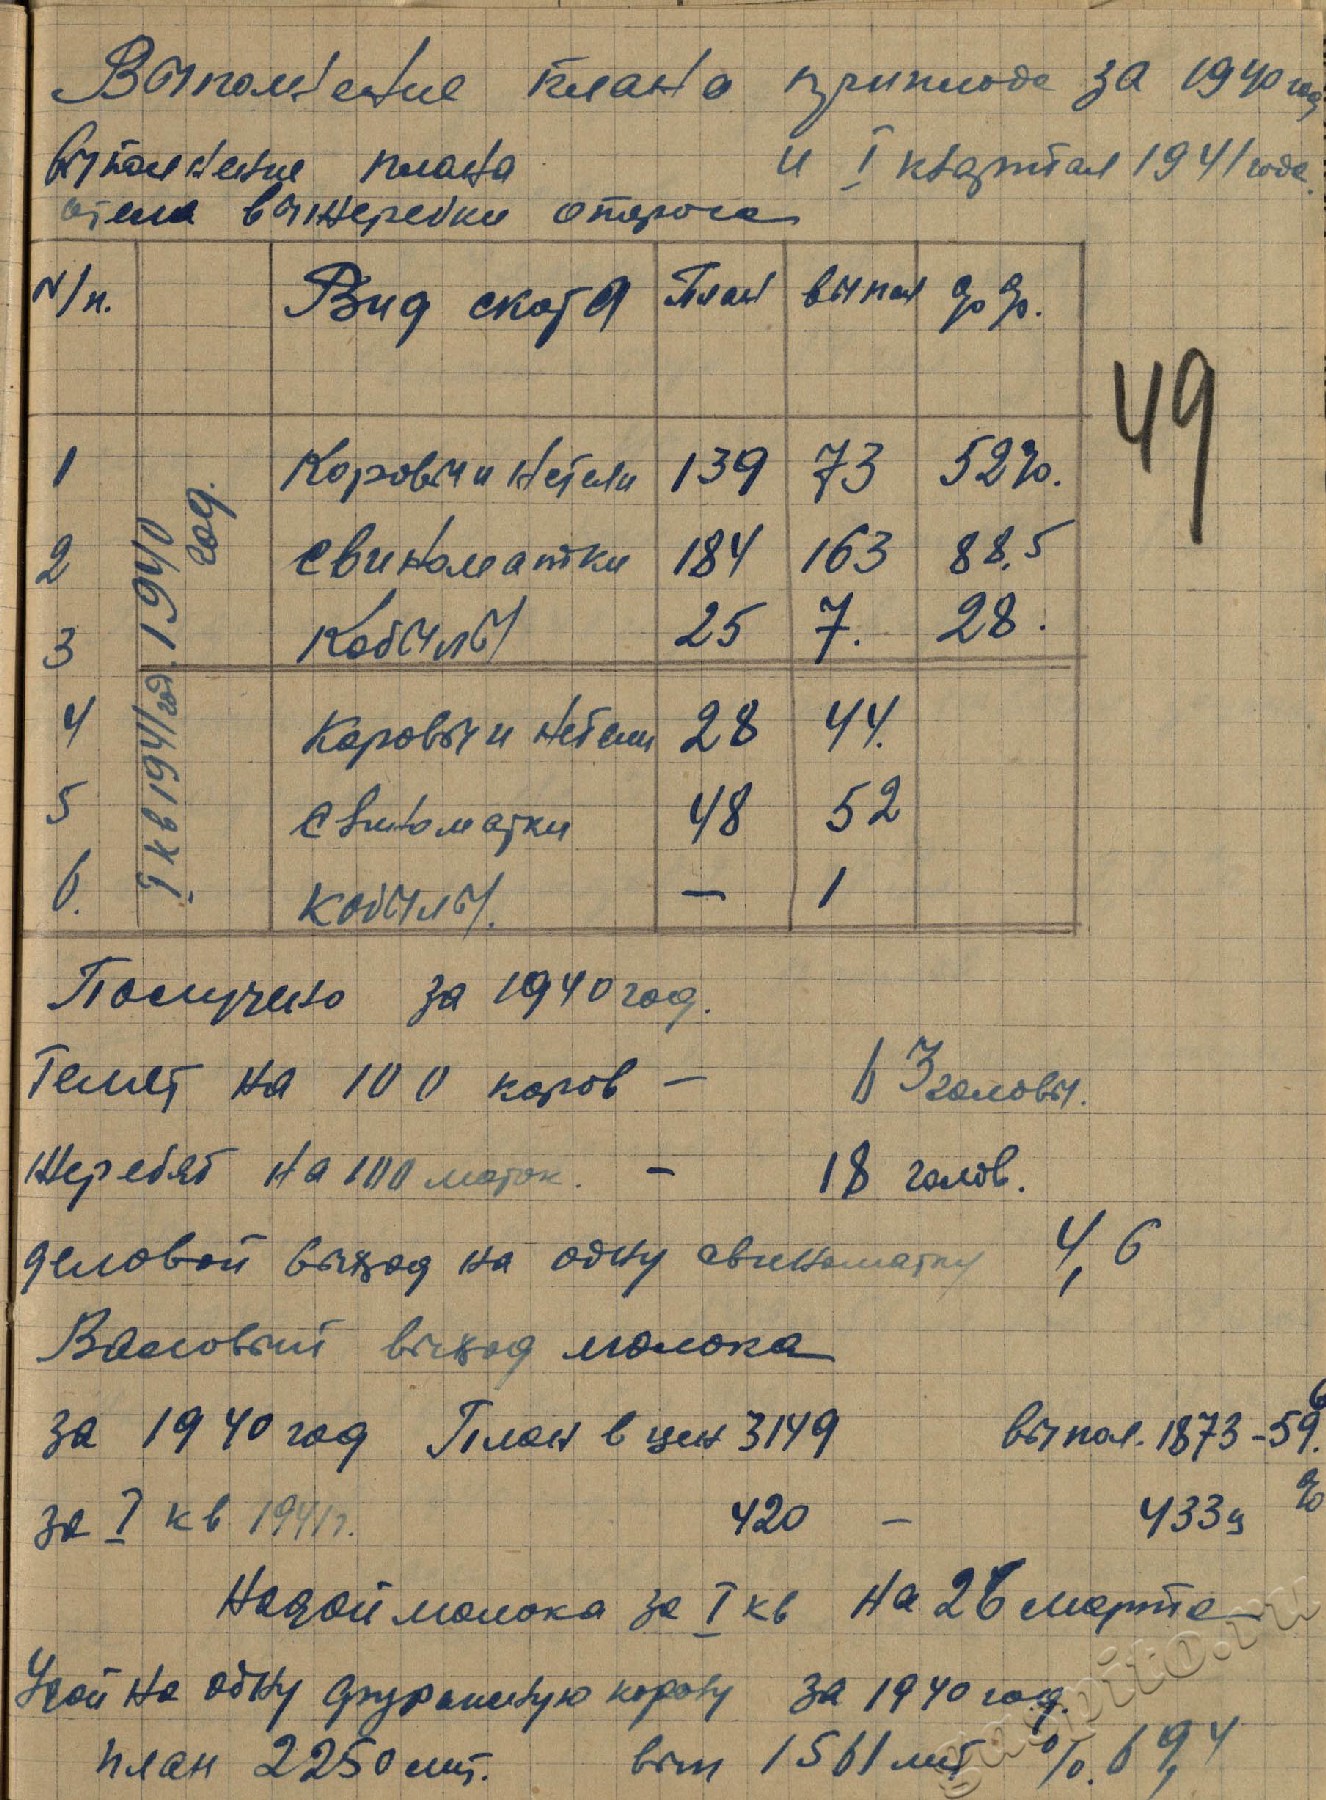 Выполнение плана приплода за 1940 год
и I квартал 1941 года.
выполнение плана
отела выжеребки опороса
N/п. Вид скота План выпол %%.
49
1 Коровы и нетели 139 73 52%.
1940 год.
2 свиноматки 184 163 88,5
3 Кобылы 25 7. 28.
I кв 1941 год.
4 Коровы и нетели 28 44.
5 свиноматки 48 52
6. кобылы. — 1
Получено за 1940 год.
Телят на 100 коров — 63 головы.
Жеребят на 100 маток. — 18 голов.
деловой выход на одну свиноматку 4,6
Валовый выход молока
за 1940 год План в цен 3149 выпол. 1873 - 59,6
%
за I кв 1941 г. 420 — 433 ц
Надой молока за I кв на 26 марта
Удой на одну фуражную корову за 1940 год.
план 2250 лит. вып 1561 лит %. 69,4
gaspito.ru